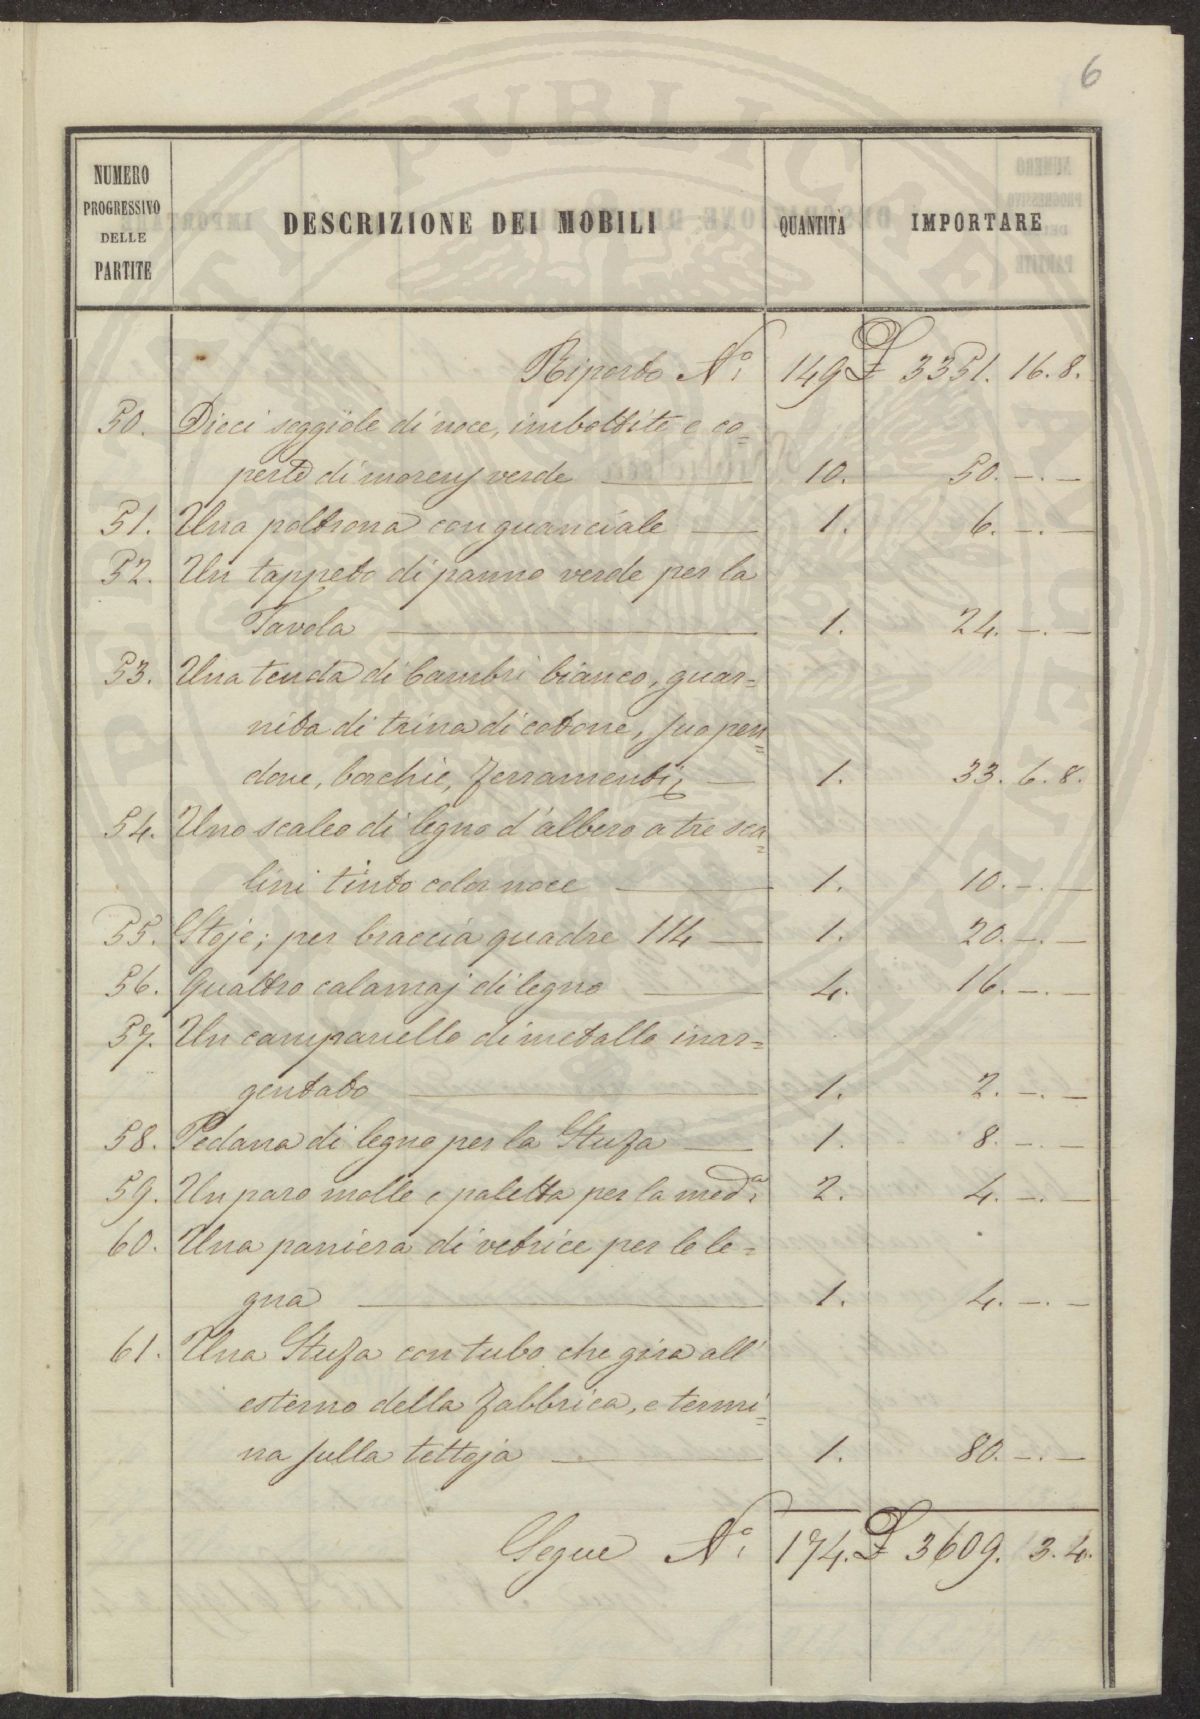 6
NUMERO PROGRESSIVO DELLE PARTITE | DESCRIZIONE DEI MOBILI | QUANTITÀ | IMPORTARE
Riporto N.º 149 £ 3351. 16. 8.
50. Dieci seggiole di noce, imbottite e co=
perte di moreng verde 10. 50. -. -
51. Una poltrona con guanciale 1. 6. -. -
52. Un tappeto di panno verde per la
Tavola 1. 24. -. -
53. Una tenda di Cambri bianco, guar=
nita di trina di cotone, suo pen=
done, borchie, ferramenti 1. 33. 6. 8.
54. Uno scaleo di legno d'albero a tre sca=
lini tinto color noce 1. 10. -. -
55. Stoje; per braccia quadre 114 1. 20. -. -
56. Quattro calamaj di legno 4. 16. -. -
57. Un campanello di metallo inar=
gentato 1. 2. -. -
58. Pedana di legno per la Stufa 1. 8. -. -
59. Un paro molle e paletta per la med.ª 2. 4. -. -
60. Una paniera di vetrice per le le=
gna 1. 4. -. -
61. Una Stufa con tubo che gira all'
esterno della fabbrica, e termi=
na sulla tettoja 1. 80. -. -
Segue N.º 174. £ 3609. 3. 4.
PVBLICE